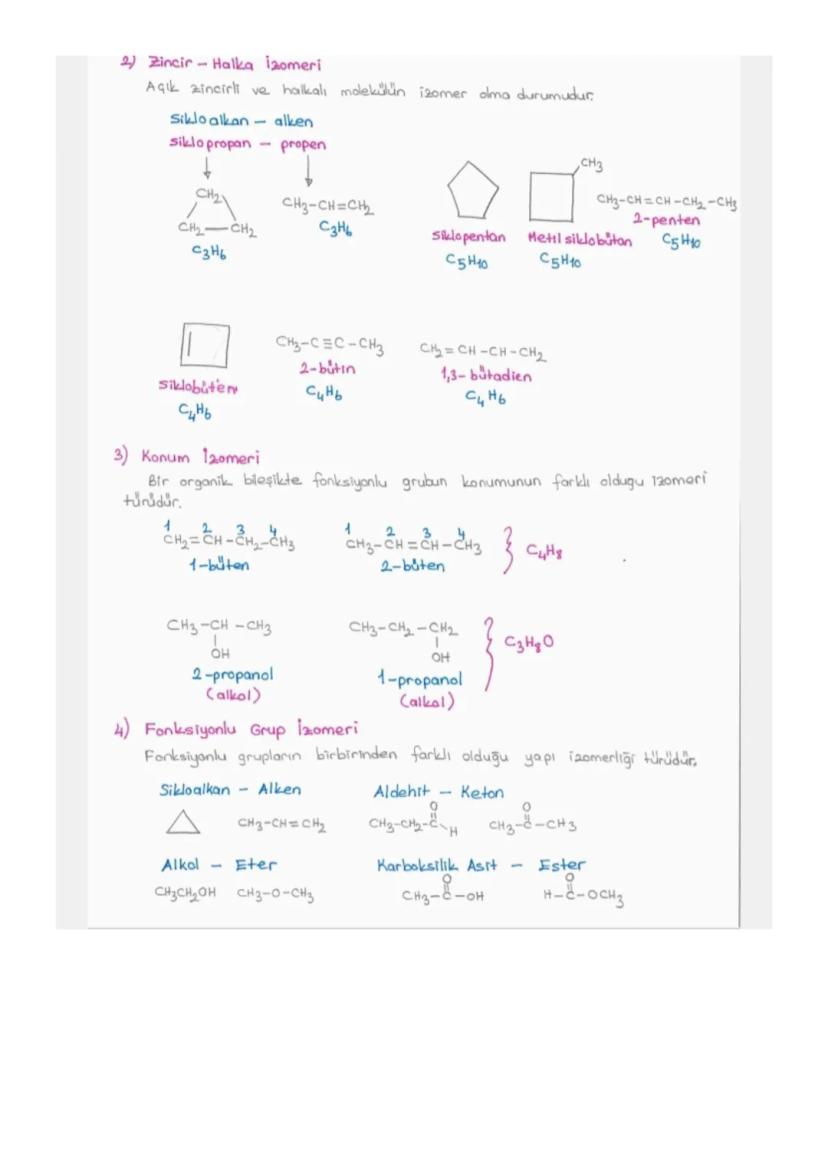 2) Zincir - Halka İzomeri
Açık zincirli ve halkalı molekülün izomer olma durumudur.
Sikloalkan - alken
siklopropan - propen
CH₂
CH₂—CH₂
C₃H₆
CH₃-CH=CH₂
C₃H₆
Siklopentan
C₅H₁₀
CH₃
Metil siklobütan
C₅H₁₀
CH₃-CH=CH-CH₂-CH₃
2-penten
C₅H₁₀
Siklobüten
C₄H₆
CH₃-C≡C-CH₃
2-bütin
C₄H₆
CH₂=CH-CH-CH₂
1,3-bütadien
C₄H₆
3) Konum İzomeri
Bir organik bileşikte fonksiyonlu grubun konumunun farklı olduğu izomeri
türüdür.
1 2 3 4
CH₂=CH-CH₂-CH₃
1-büten
1 2 3 4
CH₃-CH=CH-CH₃
2-büten
} C₄H₈
CH₃-CH-CH₃
OH
2-propanol
(alkol)
CH₃-CH₂-CH₂
OH
1-propanol
(alkol)
} C₃H₈O
4) Fonksiyonlu Grup İzomeri
Fonksiyonlu grupların birbirinden farklı olduğu yapı izomerliği türüdür.
Sikloalkan - Alken
CH₃-CH=CH₂
Aldehit - Keton
O
CH₃-CH₂-C-H
O
CH₃-C-CH₃
Alkol - Eter
CH₃CH₂OH CH₃-O-CH₃
Karboksilik Asit - Ester
O
CH₃-C-OH
O
H-C-OCH₃